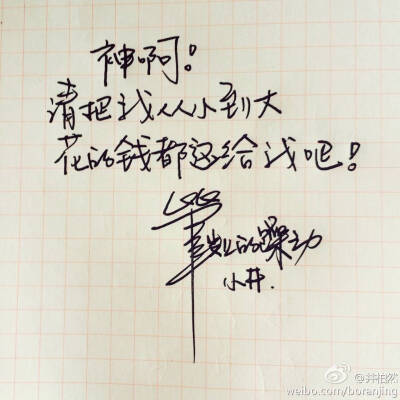 神啊!
请把我从小到大
花的钱都还给我吧!
岁的躁动
小井.
@井柏然
weibo.com/boranjing